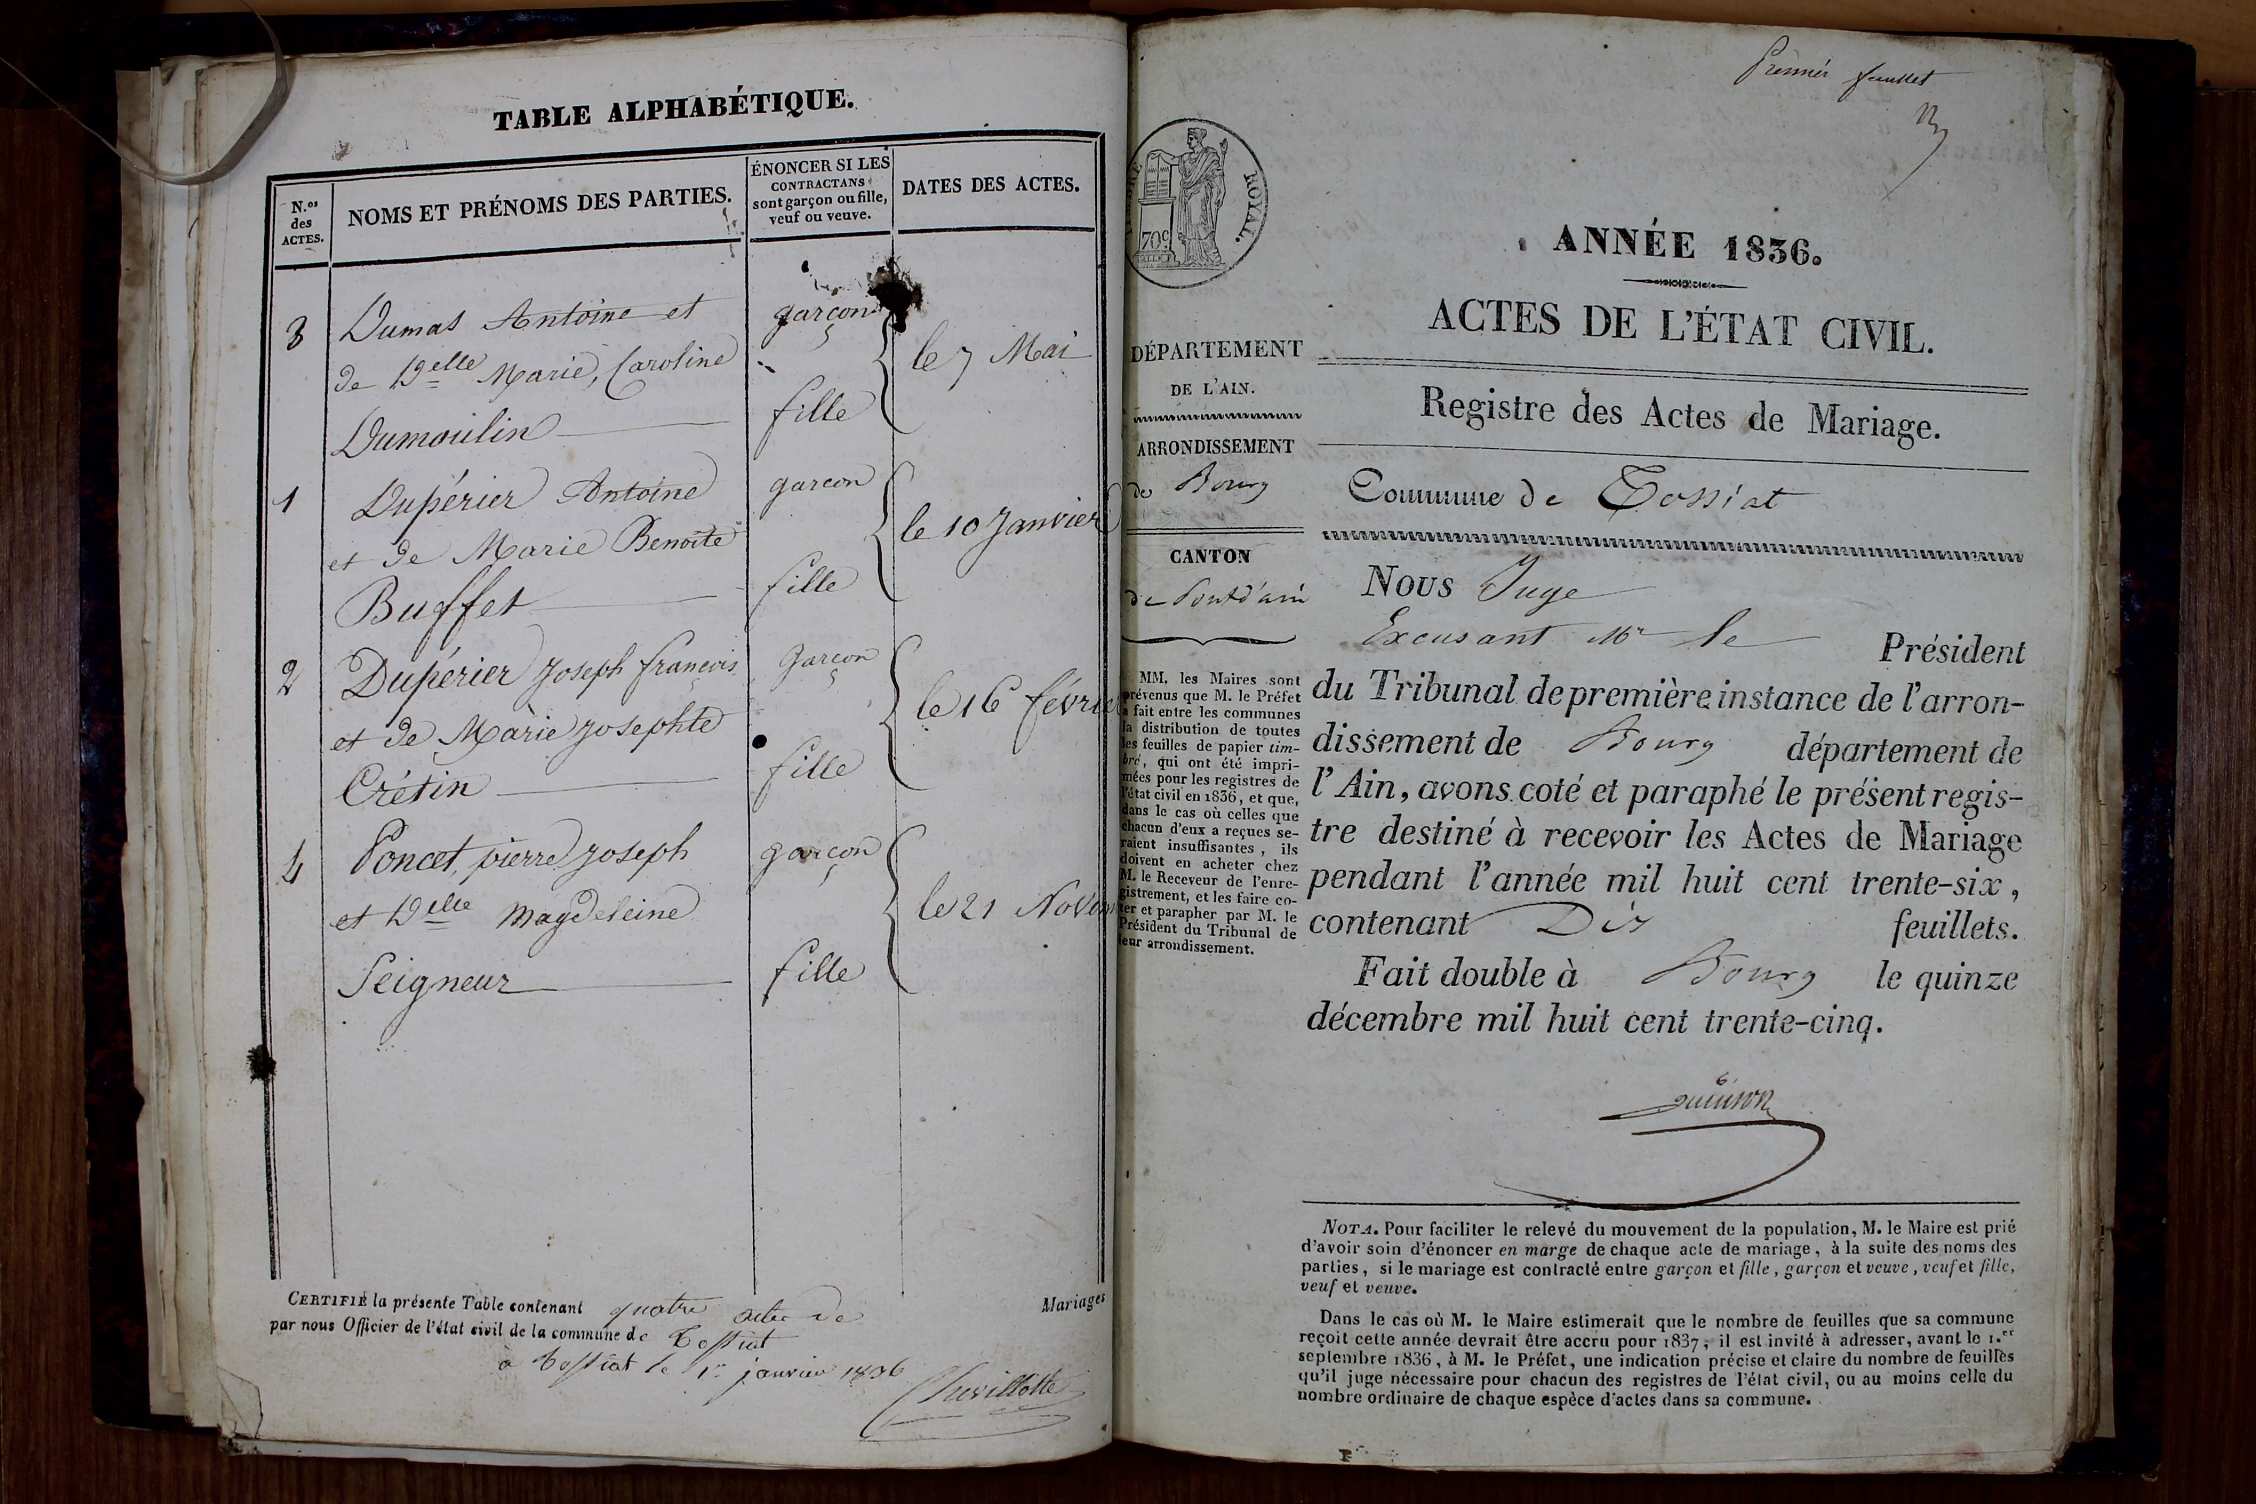 TABLE ALPHABÉTIQUE.
N.os des ACTES.
NOMS ET PRÉNOMS DES PARTIES.
ÉNONCER SI LES
CONTRACTANS
sont garçon ou fille,
veuf ou veuve.
DATES DES ACTES.
3 Dumas Antoine et garçon
de Delle Marie, Caroline le 7 Mai
Dumoulin fille
1 Dupérier Antoine garcon
et de Marie Benoite le 10 Janvier
Buffet fille
2 Dupérier Joseph françois Garçon
et de Marie Josephte le 16 février
Crétin fille
4 Poncet, pierre Joseph garçon
et Delle Magdeleine le 21 Novem
Seigneur fille
CERTIFIÉ la présente Table contenant quatre actes de Mariages
par nous Officier de l'état civil de la commune de Tossiat
à Tossiat le 1er janvier 1836
Chevillotte
Premier feuillet
ROYAL.
70c
ANNÉE 1836.
ACTES DE L'ÉTAT CIVIL.
Registre des Actes de Mariage.
Commune de Tossiat
DÉPARTEMENT
DE L'AIN.
ARRONDISSEMENT
de Bourg
CANTON
de Pontd'ain
MM. les Maires sont
prévenus que M. le Préfet
a fait entre les communes
la distribution de toutes
les feuilles de papier tim-
bré, qui ont été impri-
mées pour les registres de
l'état civil en 1836, et que,
dans le cas où celles que
chacun d'eux a reçues se-
raient insuffisantes, ils
doivent en acheter chez
M. le Receveur de l'enre-
gistrement, et les faire co-
ter et parapher par M. le
Président du Tribunal de
leur arrondissement.
Nous Juge
Excusant Mr le Président
du Tribunal de première instance de l'arron-
dissement de Bourg département de
l'Ain, avons coté et paraphé le présent regis-
tre destiné à recevoir les Actes de Mariage
pendant l'année mil huit cent trente-six,
contenant Dix feuillets.
Fait double à Bourg le quinze
décembre mil huit cent trente-cinq.
NOTA. Pour faciliter le relevé du mouvement de la population, M. le Maire est prié
d'avoir soin d'énoncer en marge de chaque acte de mariage, à la suite des noms des
parties, si le mariage est contracté entre garçon et fille, garçon et veuve, veuf et fille,
veuf et veuve.
Dans le cas où M. le Maire estimerait que le nombre de feuilles que sa commune
reçoit cette année devrait être accru pour 1837, il est invité à adresser, avant le 1.er
septembre 1836, à M. le Préfet, une indication précise et claire du nombre de feuilles
qu'il juge nécessaire pour chacun des registres de l'état civil, ou au moins celle du
nombre ordinaire de chaque espèce d'actes dans sa commune.